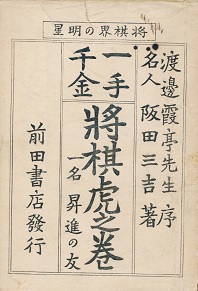 將棋界の明星
渡邊霞亭先生序
名人 阪田三吉著
一手千金
將棋虎之巻
一名 昇進の友
前田書店發行